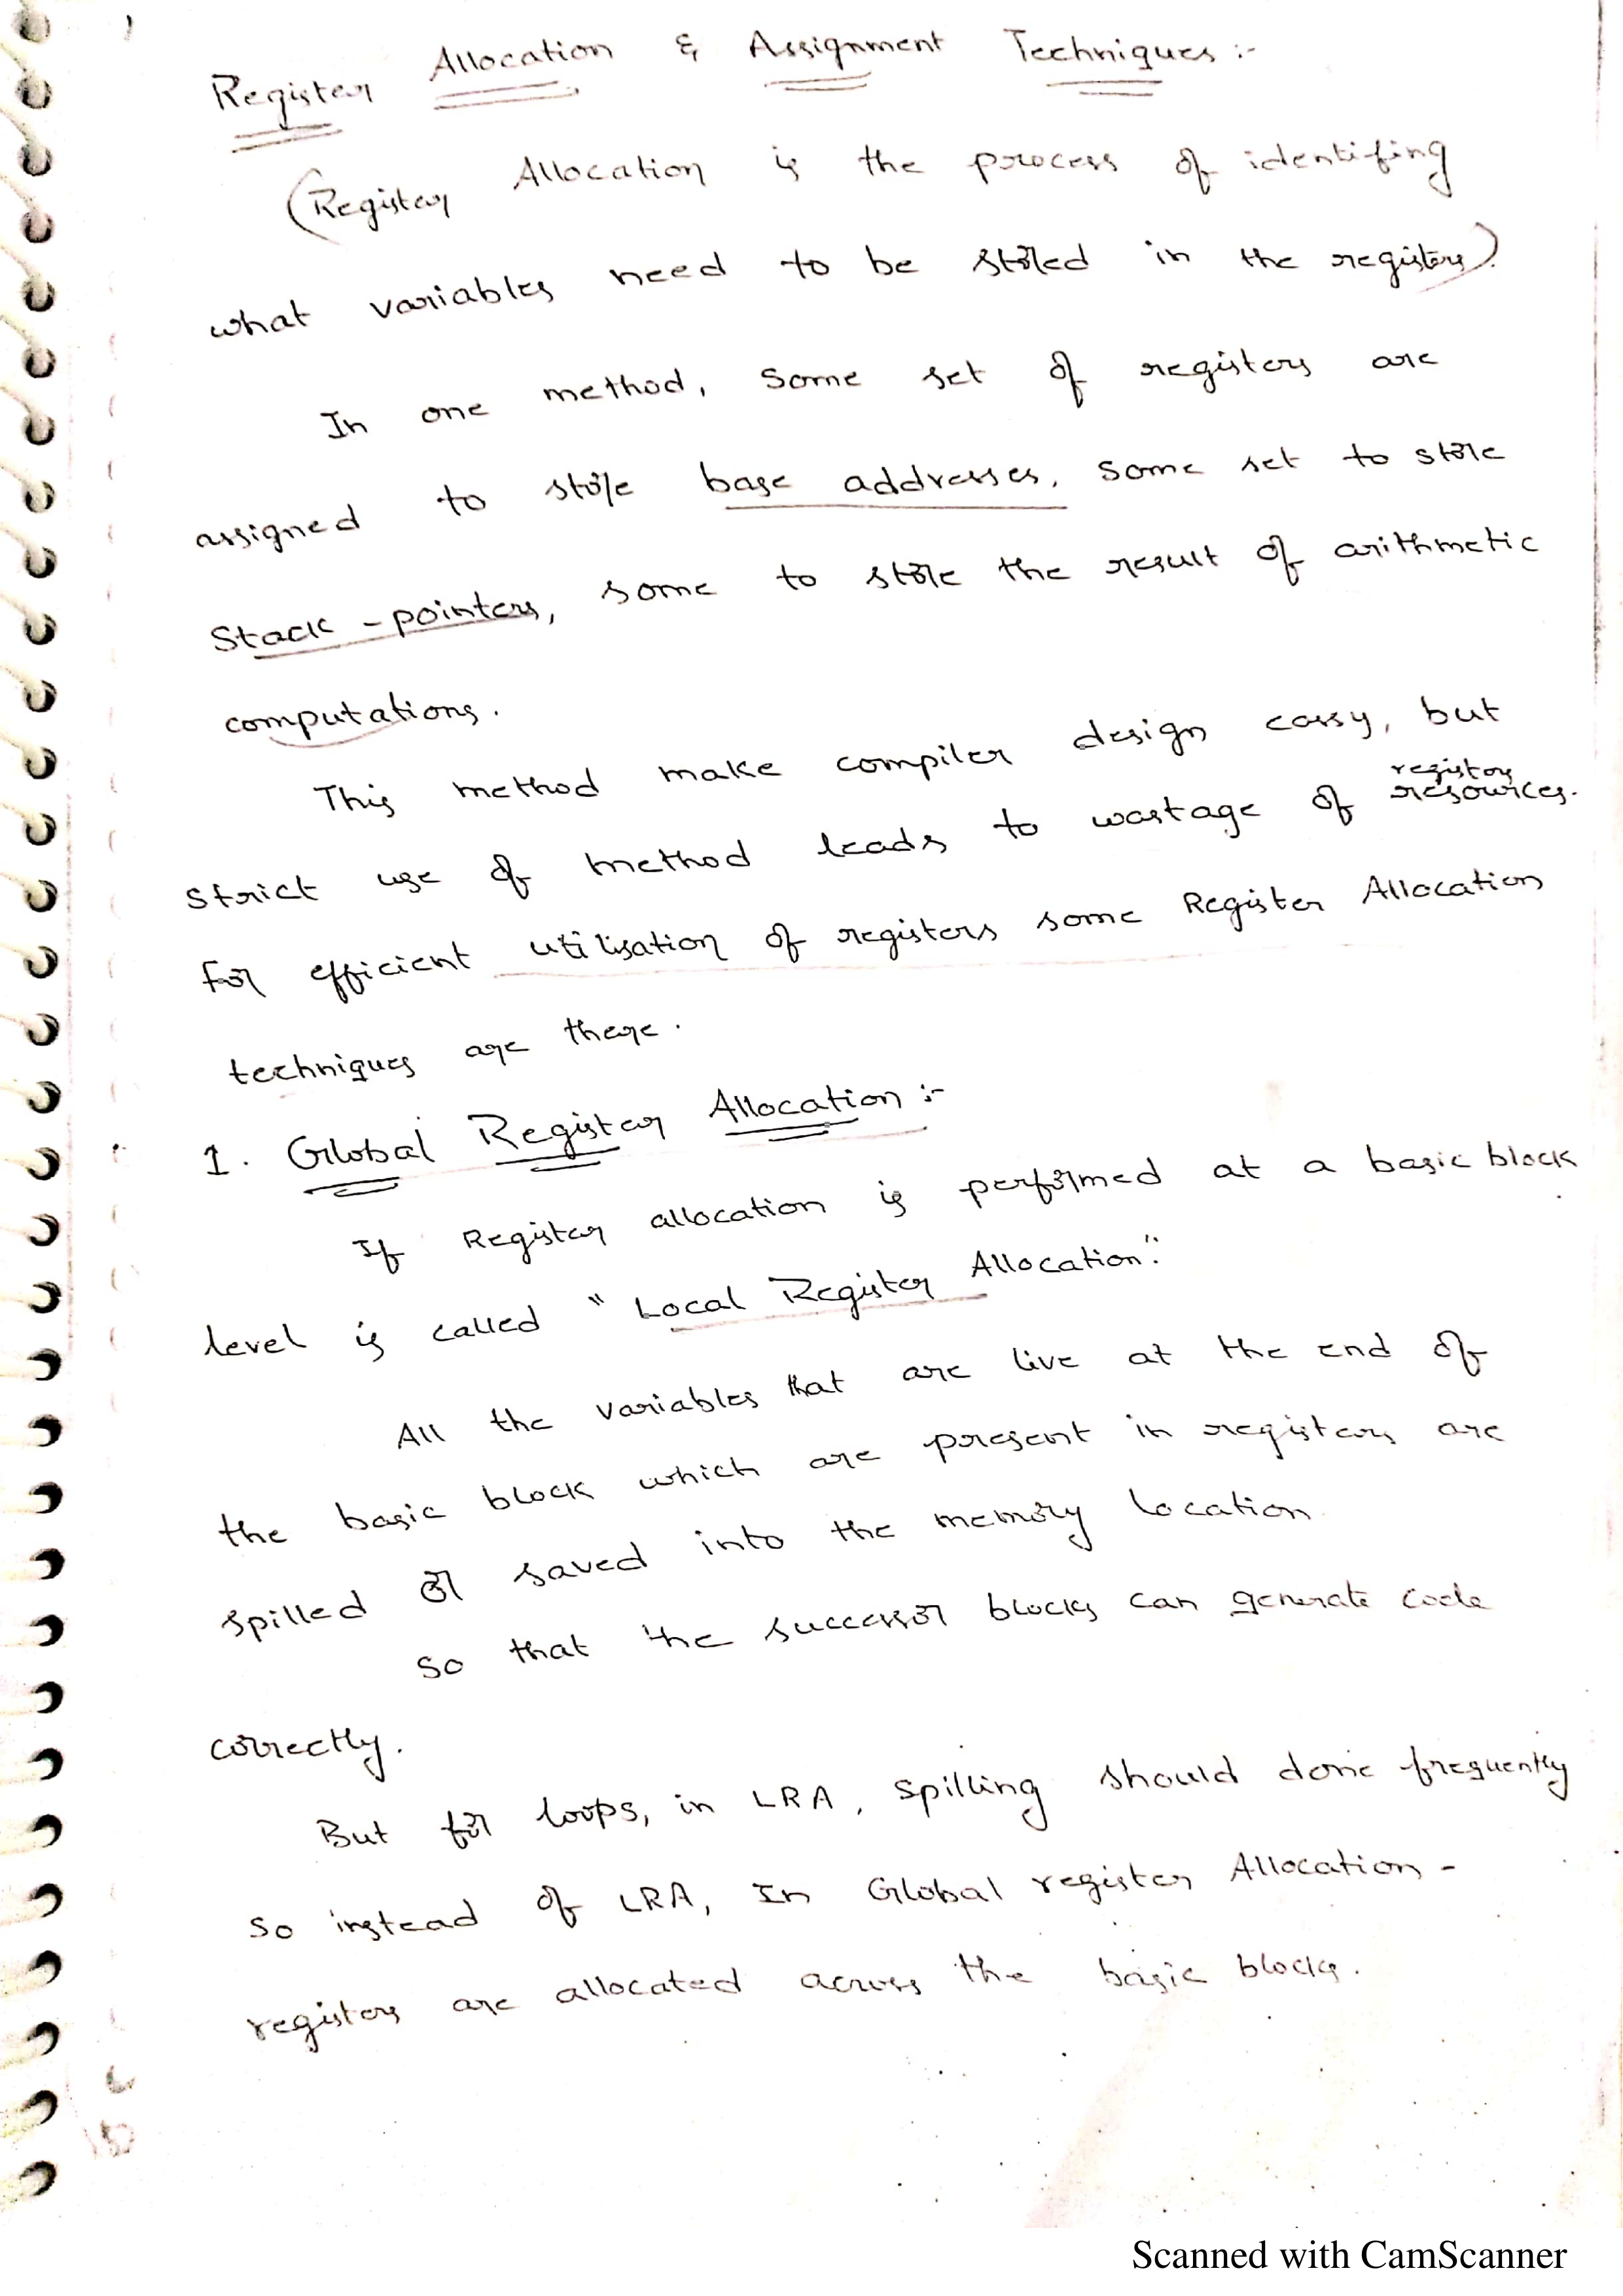 Register Allocation & Assignment Techniques :-
(Register Allocation is the process of identifing
what variables need to be stored in the registers).
In one method, some set of registers are
assigned to store base addresses, some set to store
Stack-pointers, some to store the result of arithmetic
computations.
This method make compiler design easy, but
register
strict use of method leads to wastage of resources.
For efficient utilisation of registers some Register Allocation
techniques are there.
1. Global Register Allocation :-
If Register allocation is performed at a basic block
level is called "Local Register Allocation".
All the variables that are live at the end of
the basic block which are present in registers are
spilled or saved into the memory location
So that the successor blocks can generate code
correctly.
But for loops, in LRA, spilling should done frequently
So instead of LRA, In Global register Allocation -
registers are allocated across the basic blocks.
Scanned with CamScanner